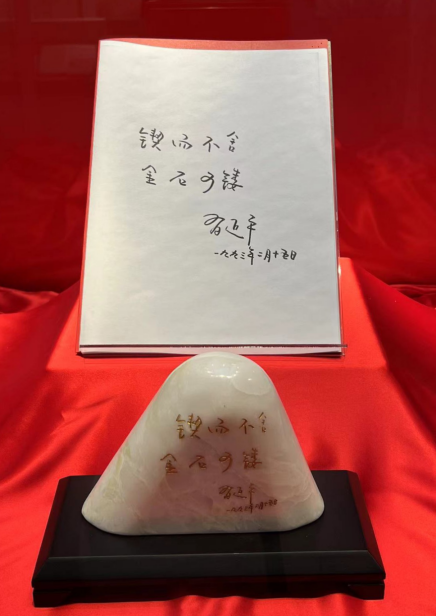 锲而不舍
金石可镂
习近平
一九九三年二月十五日
锲而不舍
金石可镂
习近平
一九九三年二月十五日